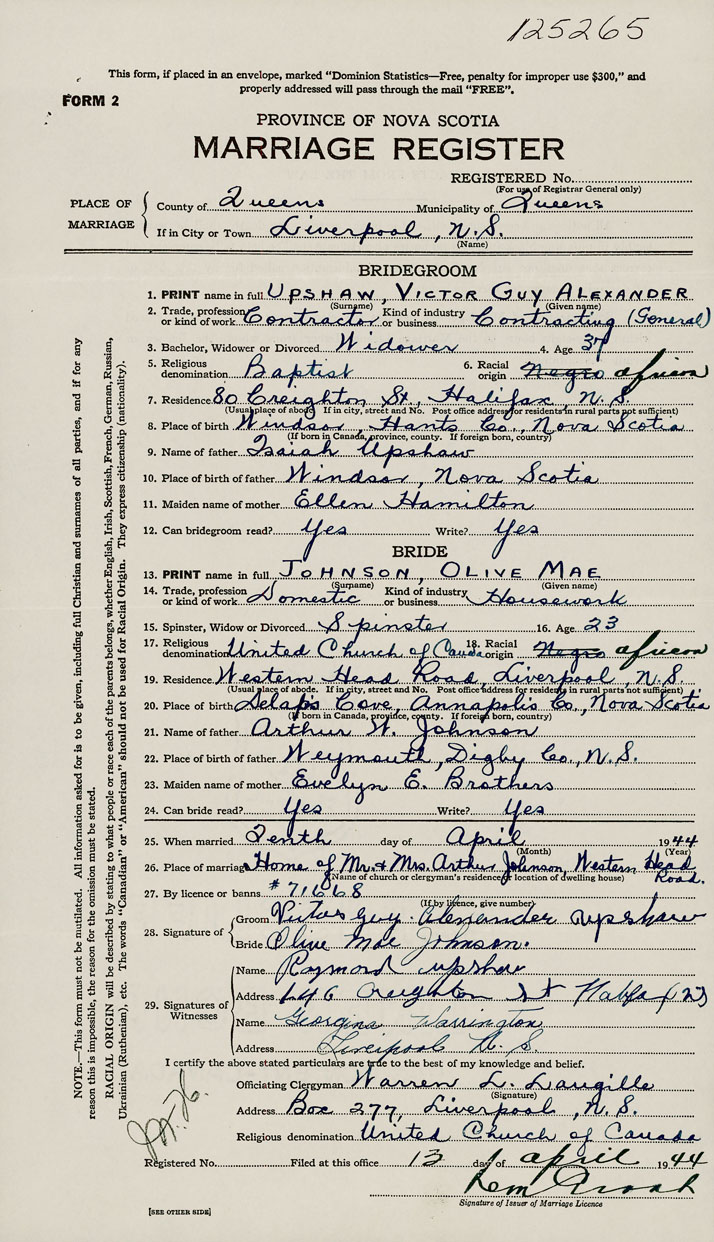 125265
This form, if placed in an envelope, marked “Dominion Statistics—Free, penalty for improper use $300,” and
properly addressed will pass through the mail “FREE”.
FORM 2
PROVINCE OF NOVA SCOTIA
MARRIAGE REGISTER
REGISTERED No.
(For use of Registrar General only)
PLACE OF MARRIAGE
County of Queens Municipality of Queens
If in City or Town Liverpool, N.S.
(Name)
BRIDEGROOM
1. PRINT name in full UPSHAW, VICTOR GUY ALEXANDER
(Surname) (Given name)
2. Trade, profession or kind of work Contractor Kind of industry or business Contracting (General)
3. Bachelor, Widower or Divorced Widower 4. Age 37
5. Religious denomination Baptist 6. Racial origin Negro african
7. Residence 80 Creighton St, Halifax, N.S.
(Usual place of abode. If in city, street and No. Post office address for residents in rural parts not sufficient)
8. Place of birth Windsor, Hants Co., Nova Scotia
(If born in Canada, province, county. If foreign born, country)
9. Name of father Isaiah Upshaw
10. Place of birth of father Windsor, Nova Scotia
11. Maiden name of mother Ellen Hamilton
12. Can bridegroom read? Yes Write? Yes
BRIDE
13. PRINT name in full JOHNSON, OLIVE MAE
(Surname) (Given name)
14. Trade, profession or kind of work Domestic Kind of industry or business Housework
15. Spinster, Widow or Divorced Spinster 16. Age 23
17. Religious denomination United Church of Canada 18. Racial origin Negro african
19. Residence Western Head Road, Liverpool, N.S.
(Usual place of abode. If in city, street and No. Post office address for residents in rural parts not sufficient)
20. Place of birth Delap's Cove, Annapolis Co., Nova Scotia
(If born in Canada, province, county. If foreign born, country)
21. Name of father Arthur W. Johnson
22. Place of birth of father Weymouth, Digby Co., N.S.
23. Maiden name of mother Evelyn E. Brothers
24. Can bride read? Yes Write? Yes
25. When married Tenth day of April 1944
(Month) (Year)
26. Place of marriage Home of Mr. & Mrs. Arthur Johnson, Western Head Road.
(Name of church or clergyman's residence or location of dwelling house)
27. By licence or banns #71668
(If by licence, give number)
28. Signature of
Groom Victor Guy Alexander Upshaw
Bride Olive Mae Johnson.
29. Signatures of Witnesses
Name Raymond Upshaw
Address 146 Creighton St Halifax
Name Georgina Warrington
Address Liverpool N.S.
I certify the above stated particulars are true to the best of my knowledge and belief.
Officiating Clergyman Warren L. Langille
(Signature)
Address Box 277, Liverpool, N.S.
Religious denomination United Church of Canada
Registered No. Filed at this office 13 day of april 1944
Signature of Issuer of Marriage Licence
[SEE OTHER SIDE]
NOTE.—This form must not be mutilated. All information asked for is to be given, including full Christian and surnames of all parties, and if for any
reason this is impossible, the reason for the omission must be stated.
RACIAL ORIGIN will be described by stating to what people or race each of the parents belongs, whether English, Irish, Scottish, French, German, Russian,
Ukrainian (Ruthenian), etc. The words “Canadian” or “American” should not be used for Racial Origin. They express citizenship (nationality).